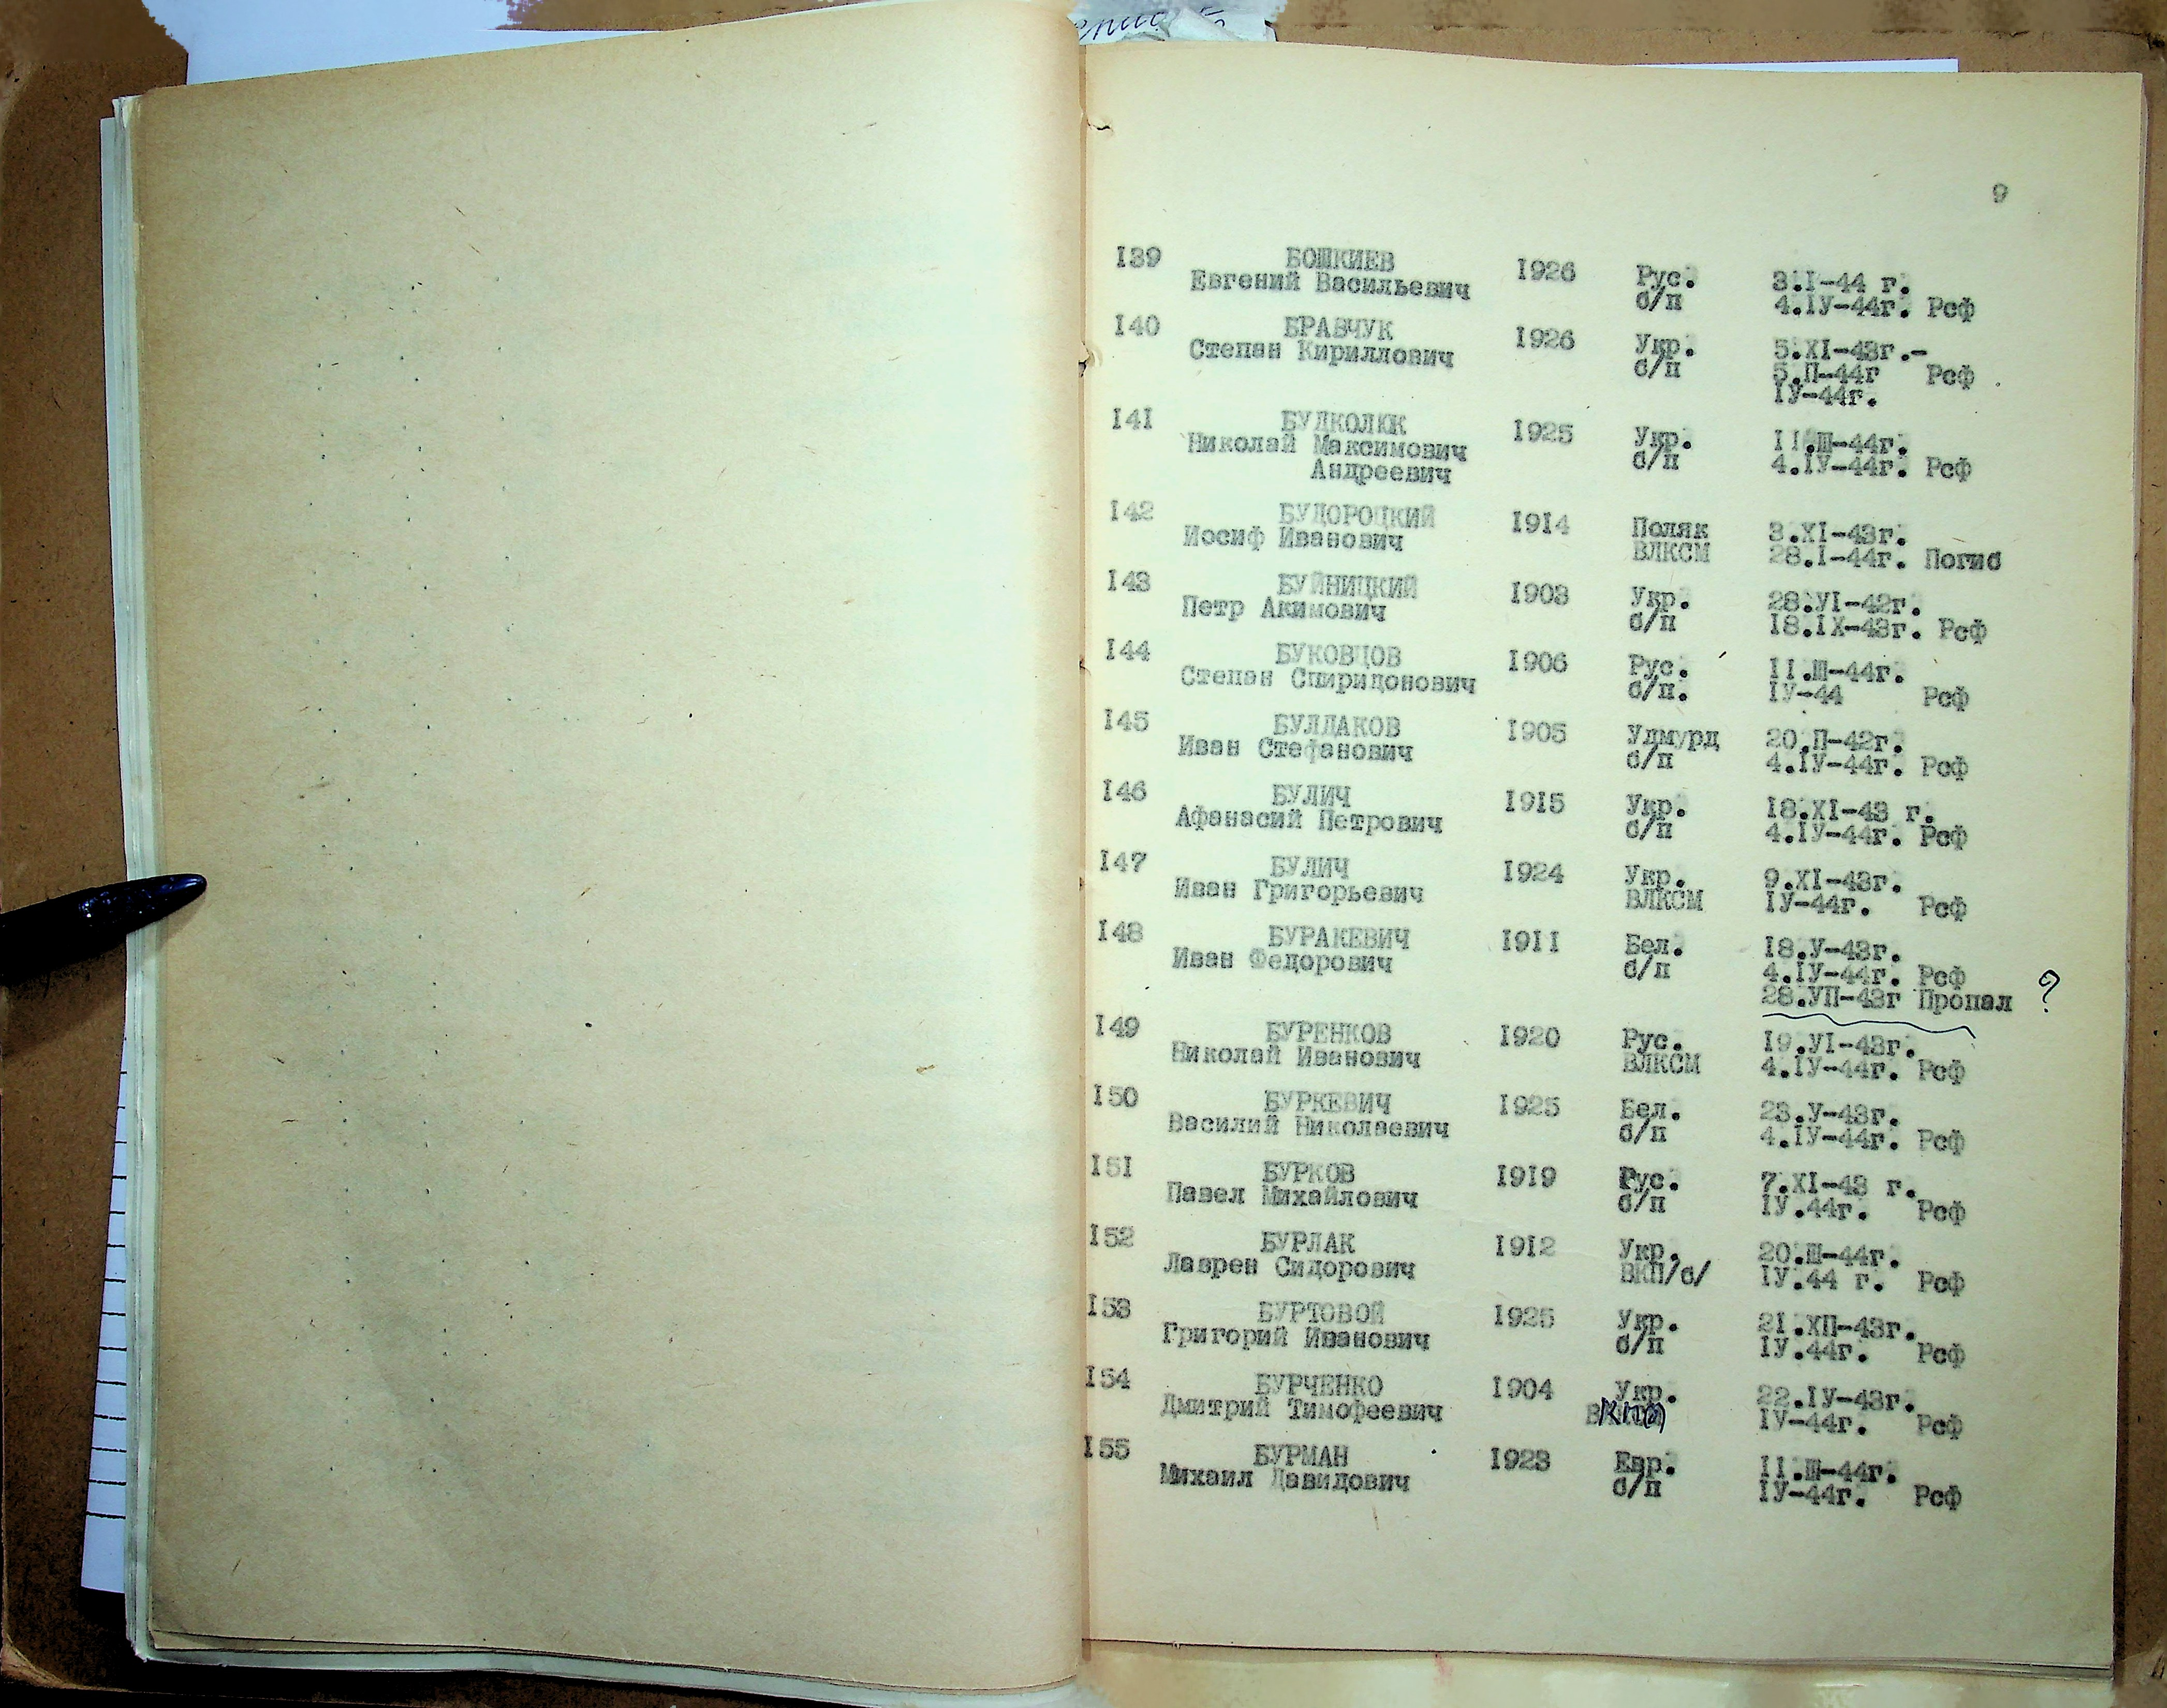 9
139 БОШКИЕВ 1926 Рус. 3.I-44 г.
Евгений Васильевич б/п 4.IУ-44г. Рсф
140 БРАВЧУК 1926 Укр. 5.XI-43г.-
Степан Кириллович б/п 5.П-44г Рсф
IУ-44г.
141 БУДКОЛЮК 1925 Укр. II.Ш-44г.
Николай Максимович б/п 4.IУ-44г. Рсф
Андреевич
142 БУДОРОЦКИЙ 1914 Поляк 3.XI-43г.
Иосиф Иванович ВЛКСМ 28.I-44г. Погиб
143 БУЙНИЦКИЙ 1903 Укр. 28.УI-42г.
Петр Акимович б/п 18.IX-43г. Рсф
144 БУКОВЦОВ 1906 Рус. II.Ш-44г.
Степан Спиридонович б/п. IУ-44 Рсф
145 БУЛДАКОВ 1905 Удмурд 20.П-42г.
Иван Стефанович б/п 4.IУ-44г. Рсф
146 БУЛИЧ 1915 Укр. 18.XI-43 г.
Афанасий Петрович б/п 4.IУ-44г. Рсф
147 БУЛИЧ 1924 Укр. 9.XI-43г.
Иван Григорьевич ВЛКСМ IУ-44г. Рсф
148 БУРАКЕВИЧ 1911 Бел. 18.У-43г.
Иван Федорович б/п 4.IУ-44г. Рсф
28.УП-43г Пропал ?
149 БУРЕНКОВ 1920 Рус. 19.УI-43г.
Николай Иванович ВЛКСМ 4.IУ-44г. Рсф
150 БУРКЕВИЧ 1925 Бел. 23.У-43г.
Василий Николаевич б/п 4.IУ-44г. Рсф
151 БУРКОВ 1919 Рус. 7.XI-43 г.
Павел Михайлович б/п IУ.44г. Рсф
152 БУРЛАК 1912 Укр. 20.Ш-44г.
Лаврен Сидорович ВКП/б/ IУ.44 г. Рсф
153 БУРТОВОЙ 1925 Укр. 21.ХП-43г.
Григорий Иванович б/п IУ.44г. Рсф
154 БУРЧЕНКО 1904 Укр. 22.IУ-43г.
Дмитрий Тимофеевич IУ-44г. Рсф
155 БУРМАН 1923 Евр. II.Ш-44г.
Михаил Давидович б/п IУ-44г. Рсф